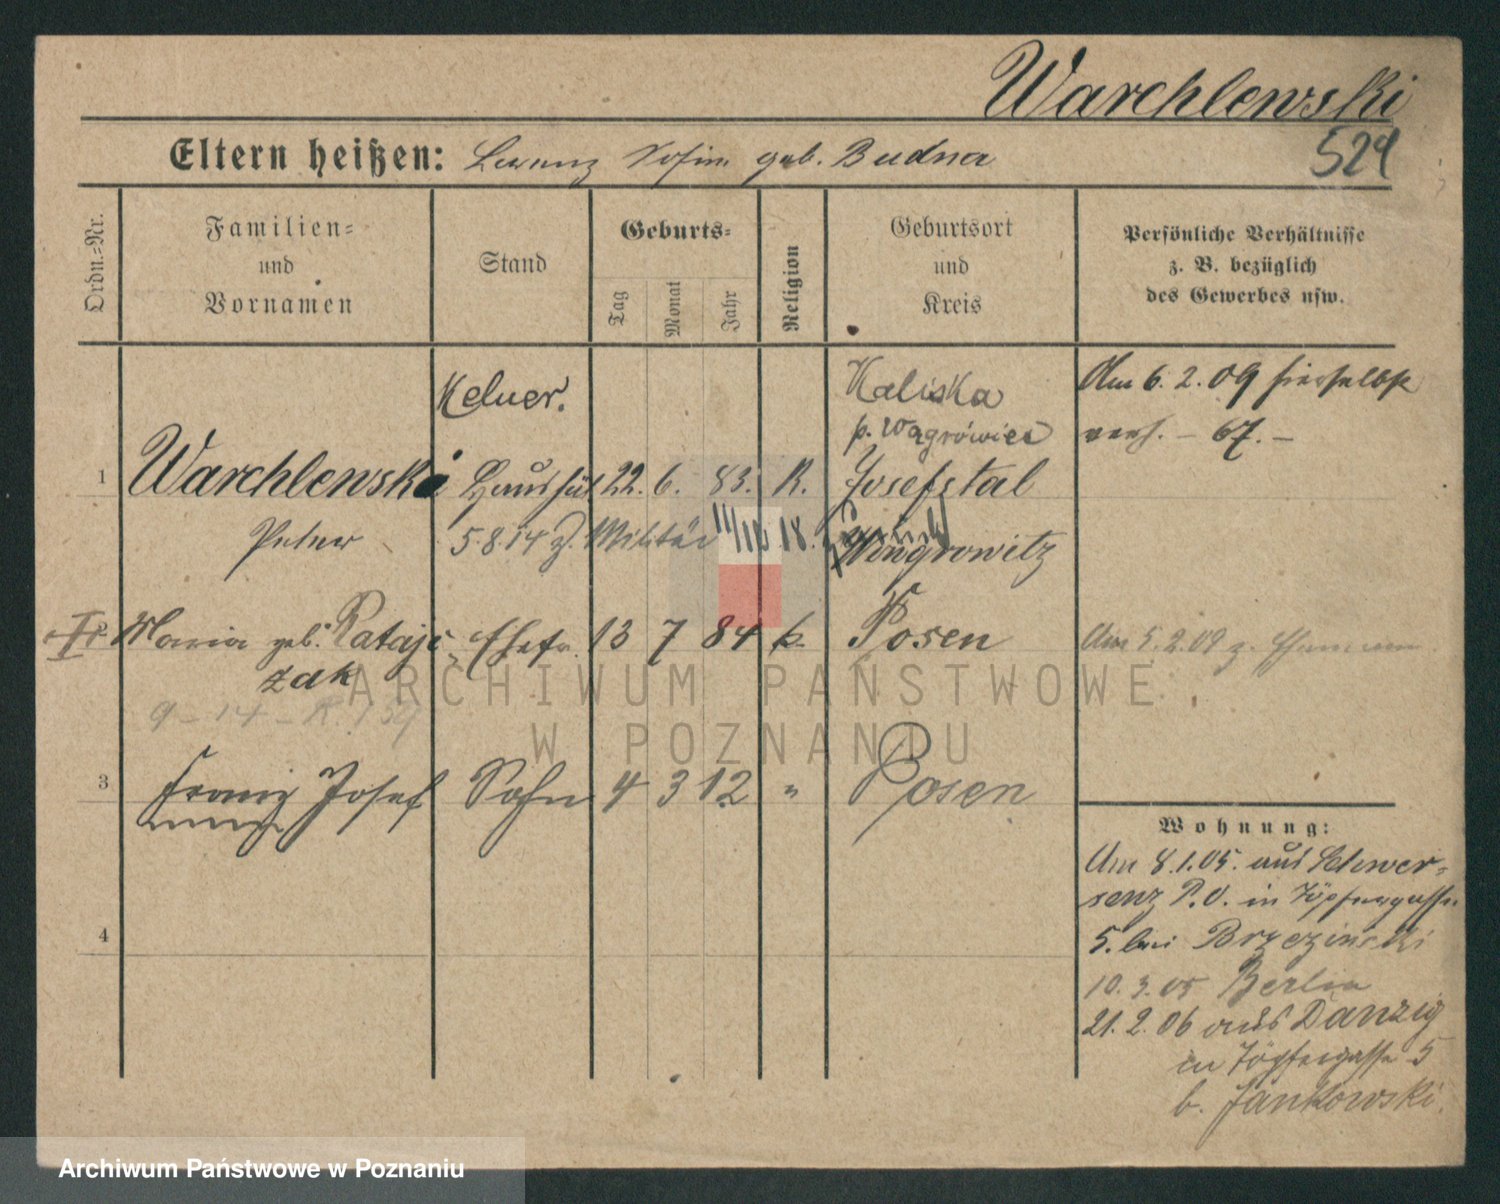 Warchlewski
524
Eltern heißen: Lorenz Sofie geb. Budna
Ordn.-Nr.
Familien-
und
Vornamen
Stand
Geburts-
Tag
Monat
Jahr
Religion
Geburtsort
und
Kreis
Persönliche Verhältnisse
z. B. bezüglich
des Gewerbes usw.
Kelner.
Kaliska
p. Wągrówiec
Am 6. 2. 09 hierselbst
verh. – 67. –
1 Warchlewski 22. 6. 83. R. Josefstal
Peter 5.8.14 z. Militär 18. Wongrowitz
Maria geb. Rataj- Ehefr. 13 7 84 k. Posen
zak
Am 5.2.09 z. Ehemann
9 – 14 – R. 139
3 Franz Josef Sohn 4 3 12 " Posen
4
Wohnung:
Am 8.1.05. aus Schwer-
senz P.O. in Töpfergasse
5. bei Brzezinski
10. 3. 05 Berlin
21. 2. 06 aus Danzig
in Töpfergasse 5
b. Jankowski.
ARCHIWUM PAŃSTWOWE
W POZNANIU
Archiwum Państwowe w Poznaniu